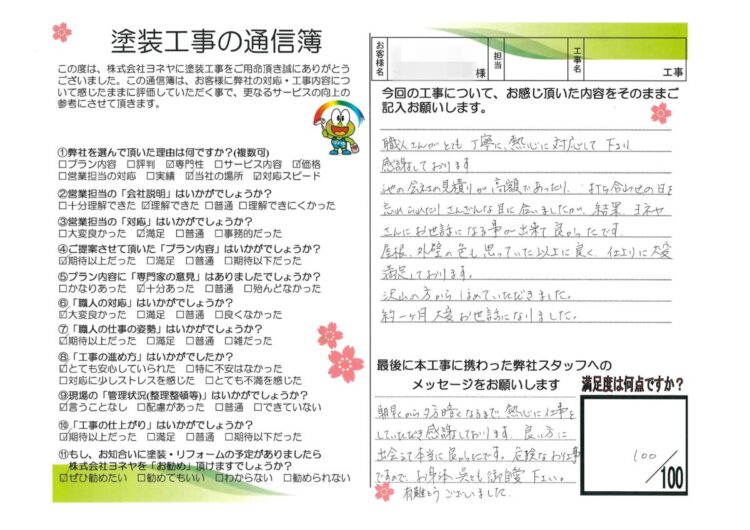 塗装工事の通信簿
この度は、株式会社ヨネヤに塗装工事をご用命頂き誠にありがとう
ございました。この通信簿は、お客様に弊社の対応・工事内容に
ついて感じたままに評価していただく事で、更なるサービスの向上の
参考にさせて頂きます。
①弊社を選んで頂いた理由は何ですか?(複数可)
□プラン内容 □評判 ☑専門性 □サービス内容 ☑価格
□営業担当の対応 □実績 ☑当社の場所 ☑対応スピード
②営業担当の「会社説明」はいかがでしょうか?
□十分理解できた ☑理解できた □普通 □理解できにくかった
③営業担当の「対応」はいかがでしょうか?
□大変良かった ☑満足 □普通 □事務的だった
④ご提案させて頂いた「プラン内容」はいかがでしょうか?
☑期待以上だった □満足 □普通 □期待以下だった
⑤プラン内容に「専門家の意見」はありましたでしょうか?
□かなりあった ☑十分あった □普通 □殆んどなかった
⑥「職人の対応」はいかがでしょうか?
☑大変良かった □満足 □普通 □良くなかった
⑦「職人の仕事の姿勢」はいかがでしょうか?
☑期待以上だった □満足 □普通 □雑だった
⑧「工事の進め方」はいかがでしたか?
☑とても安心していられた □特に不安はなかった
□対応に少しストレスを感じた □とても不満を感じた
⑨現場の「管理状況(整理整頓等)」はいかがでしょうか?
☑言うことなし □配慮があった □普通 □できていない
⑩「工事の仕上がり」はいかがでしょうか?
☑期待以上だった □満足 □普通 □期待以下だった
⑪もし、お知合いに塗装・リフォームの予定がありましたら
株式会社ヨネヤを「お勧め」頂けますでしょうか?
☑ぜひ勧めたい □勧めてもいい □わからない □勧められない
お客様名 様 担当 工事名 工事
今回の工事について、お感じ頂いた内容をそのままご
記入お願いします。
職人さんがとても丁寧に、熱心に対応して下さり
感謝しております
他の会社の見積りが高額であったり、打ち合わせの日を
忘れられたりさんざんな目に合いましたが、結果、ヨネヤ
さんにお世話になる事が出来て良かったです。
屋根、外壁の色も思っていた以上に良く、仕上りに大変
満足しております。
沢山の方からほめていただきました。
約一ヶ月大変お世話になりました。
最後に本工事に携わった弊社スタッフへの
メッセージをお願いします
満足度は何点ですか?
朝早くから夕方暗くなるまで、熱心に仕事を
していただき感謝しております。良い方に
出会えて本当に良かったです。危険なお仕事
ですので、お身体呉々も御自愛下さい。
有難とうございました。
100
/100